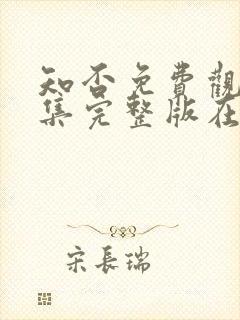 知否免費觀
集完整版在
宋長瑞